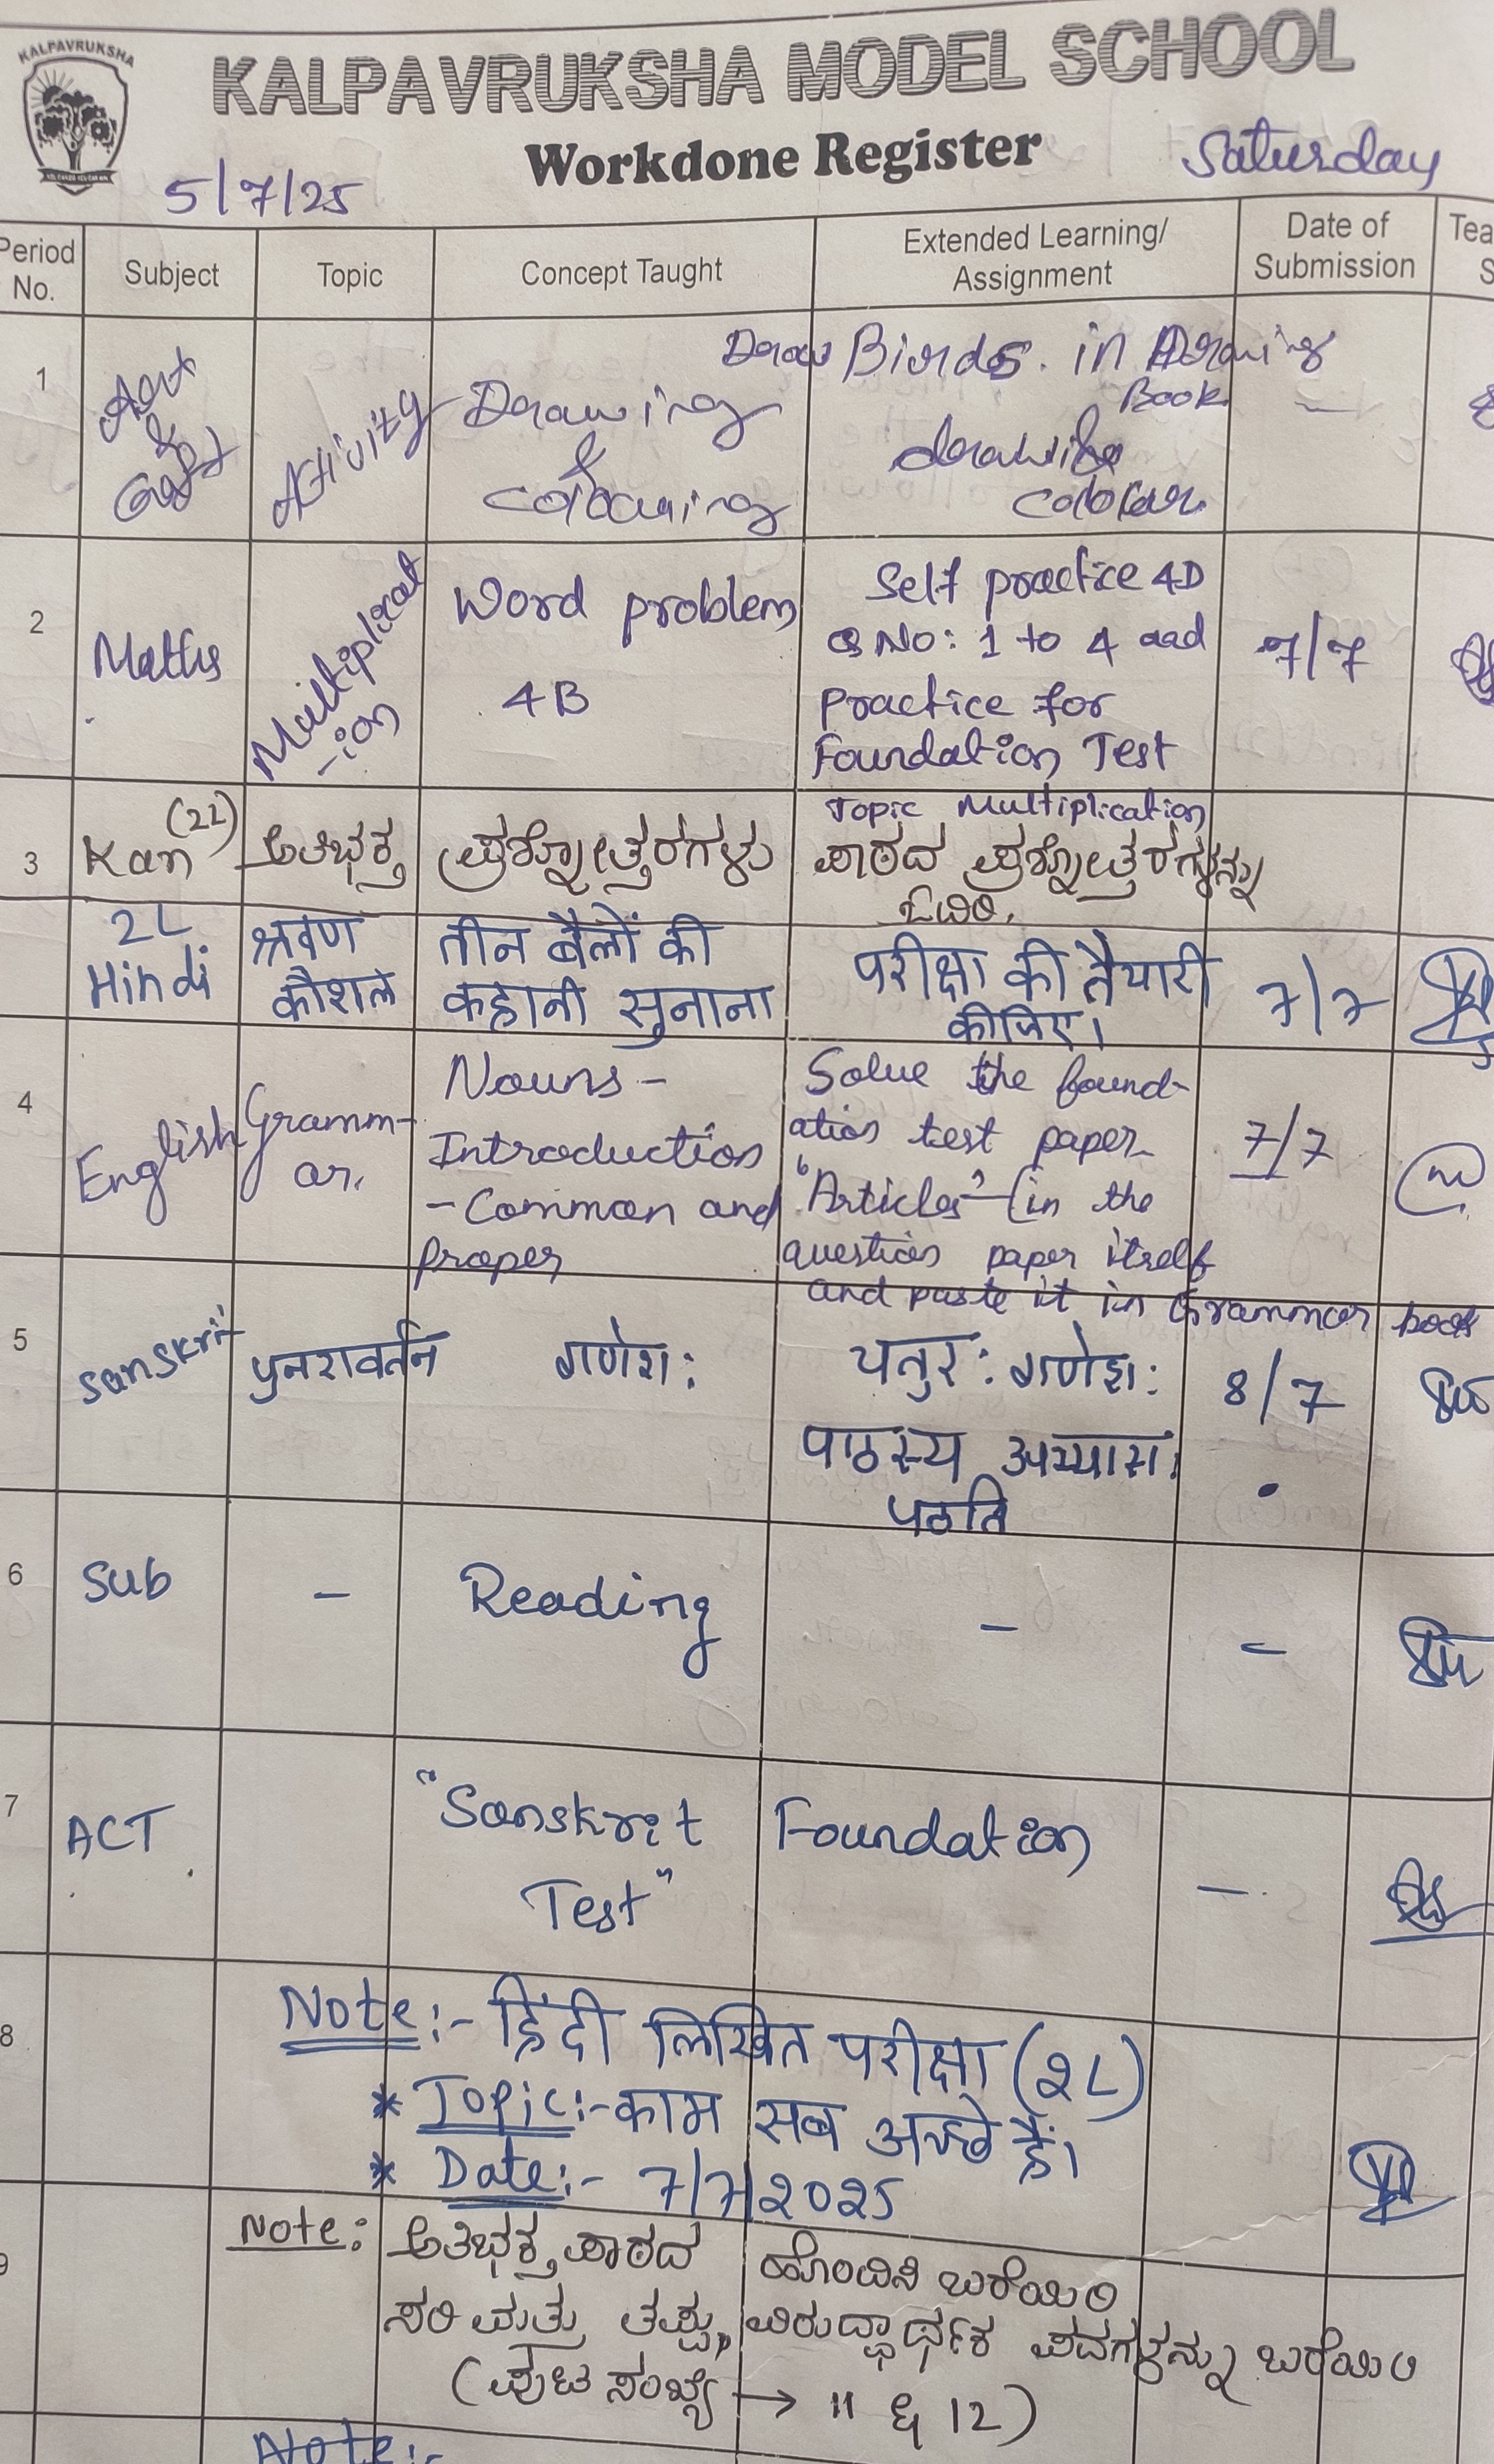 KALPAVRUKSHA
KALPAVRUKSHA MODEL SCHOOL
Workdone Register
Saturday
5/7/25
Period No.
Subject
Topic
Concept Taught
Extended Learning/ Assignment
Date of Submission
Tea
S
1
Art & Craft
Activity
Drawing & colouring
Draw Birds. in Drawing Book
colour
-
2
Maths
Multiplicat
-ion
Word problem
4B
Self practice 4D
Q No: 1 to 4 and
Practice for
Foundation Test
Topic Multiplication
7/7
3
Kan (2L)
ಅತಿಭಕ್ತ
ಪ್ರಶ್ನೋತ್ತರಗಳು
ಪಾಠದ ಪ್ರಶ್ನೋತ್ತರಗಳನ್ನು
ಓದಿರಿ.
2L
Hindi
श्रवण
कौशल
तीन बैलों की
कहानी सुनाना
परीक्षा की तैयारी
कीजिए।
7/7
4
English
Gramm-
ar.
Nouns -
Introduction
- Common and
proper
Solve the found-
ation test paper
"Articles" - (in the
question paper itself
and paste it in Grammar book
7/7
5
sanskrit
पुनरावर्तन
गणेश:
चतुर: गणेश:
पाठस्य अभ्यास।
पठति
8/7
6
Sub
-
Reading
-
-
7
ACT
"Sanskrit Foundation
Test"
-
8
Note:- हिंदी लिखित परीक्षा (2L)
* Topic:- काम सब अच्छे हैं।
* Date:- 7/7/2025
9
Note: ಅತಿಭಕ್ತ ಪಾಠದ ಹೊಂದಿಸಿ ಬರೆಯಿರಿ
ಸರಿ ಮತ್ತು ತಪ್ಪು, ವಿರುದ್ಧಾರ್ಥಕ ಪದಗಳನ್ನು ಬರೆಯಿರಿ
(ಪುಟ ಸಂಖ್ಯೆ → 11 & 12)
Note:-